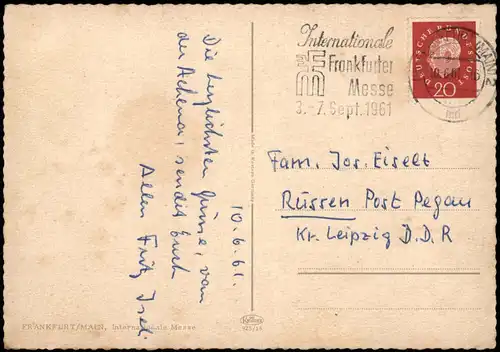 10.6.61.
Die herzlichsten Grüsse, von
der Achema, sendet Euch
Allen Fritz
Internationale
Frankfurter
Messe
3.-7. Sept. 1961
DEUTSCHE BUNDESPOST
20
Fam. Jos. Eiselt
Rüssen Post Pegau
Kr. Leipzig D.D.R
FRANKFURT/MAIN, Internationale Messe
Krüger